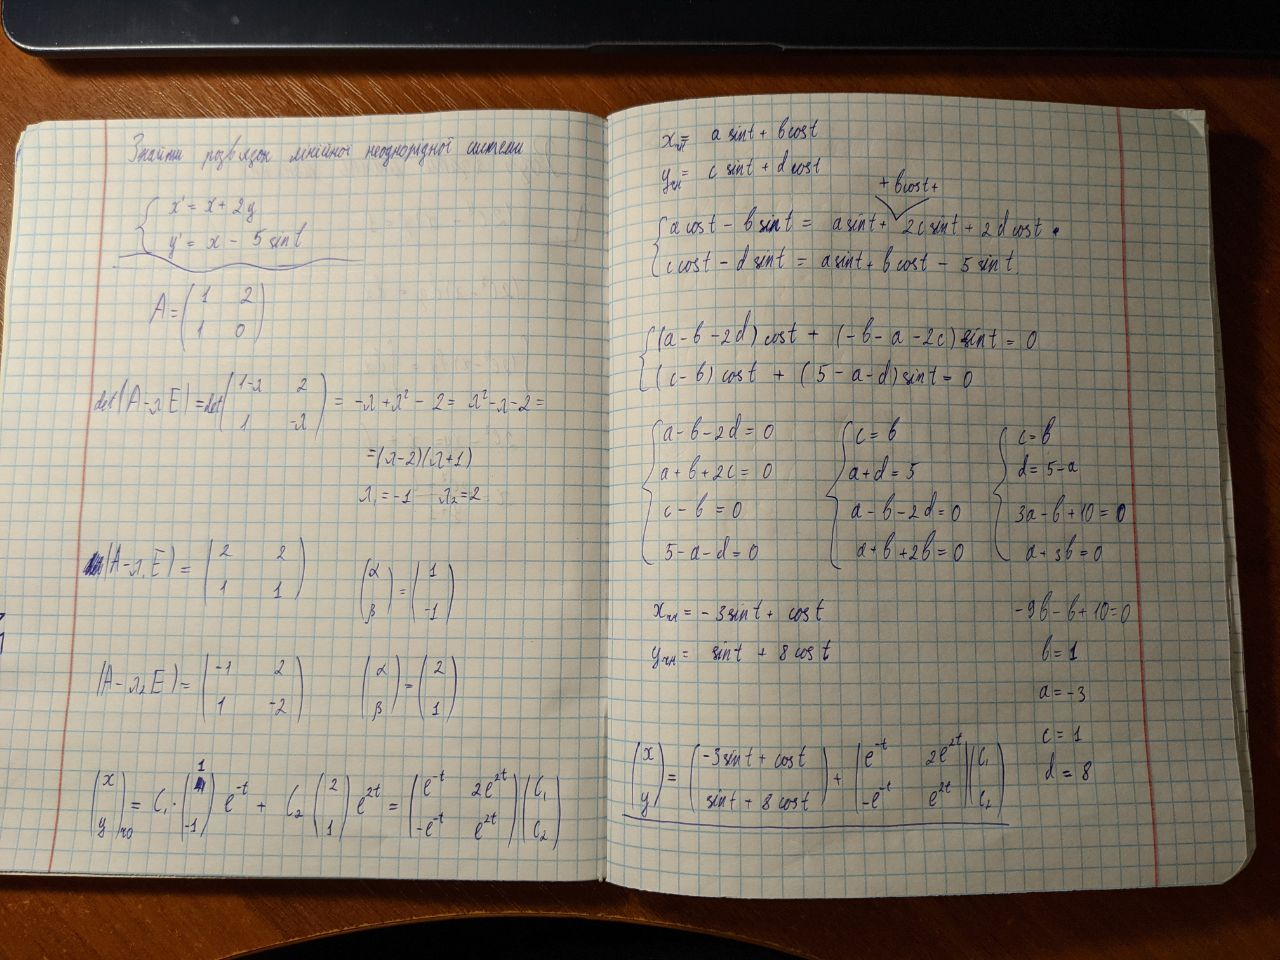 Знайти розв'язок лінійної неоднорідної системи
{ x' = x + 2y
y' = x - 5 sin t
A = ( 1 2
1 0 )
det(A - λE) = det ( 1-λ 2
1 -λ ) = -λ + λ² - 2 = λ² - λ - 2 =
= (λ-2)(λ+1)
λ₁ = -1 λ₂ = 2
(A - λ₁E) = ( 2 2
1 1 ) ( α
β ) = ( 1
-1 )
(A - λ₂E) = ( -1 2
1 -2 ) ( α
β ) = ( 2
1 )
( x
y )чо = C₁ · ( 1
-1 ) e^-t + C₂ ( 2
1 ) e^2t = ( e^-t 2e^2t
-e^-t e^2t ) ( C₁
C₂ )
xчн = a sin t + b cos t
yчн = c sin t + d cos t
+ b cos t +
{ a cos t - b sin t = a sin t + 2c sin t + 2d cos t
c cos t - d sin t = a sin t + b cos t - 5 sin t
{ (a - b - 2d) cos t + (-b - a - 2c) sin t = 0
(c - b) cos t + (5 - a - d) sin t = 0
{ a - b - 2d = 0
a + b + 2c = 0
c - b = 0
5 - a - d = 0
{ c = b
a + d = 5
a - b - 2d = 0
a + b + 2b = 0
{ c = b
d = 5 - a
3a - b + 10 = 0
a + 3b = 0
-9b - b + 10 = 0
b = 1
a = -3
c = 1
d = 8
xчн = -3 sin t + cos t
yчн = sin t + 8 cos t
( x
y ) = ( -3 sin t + cos t
sin t + 8 cos t ) + ( e^-t 2e^2t
-e^-t e^2t ) ( C₁
C₂ )